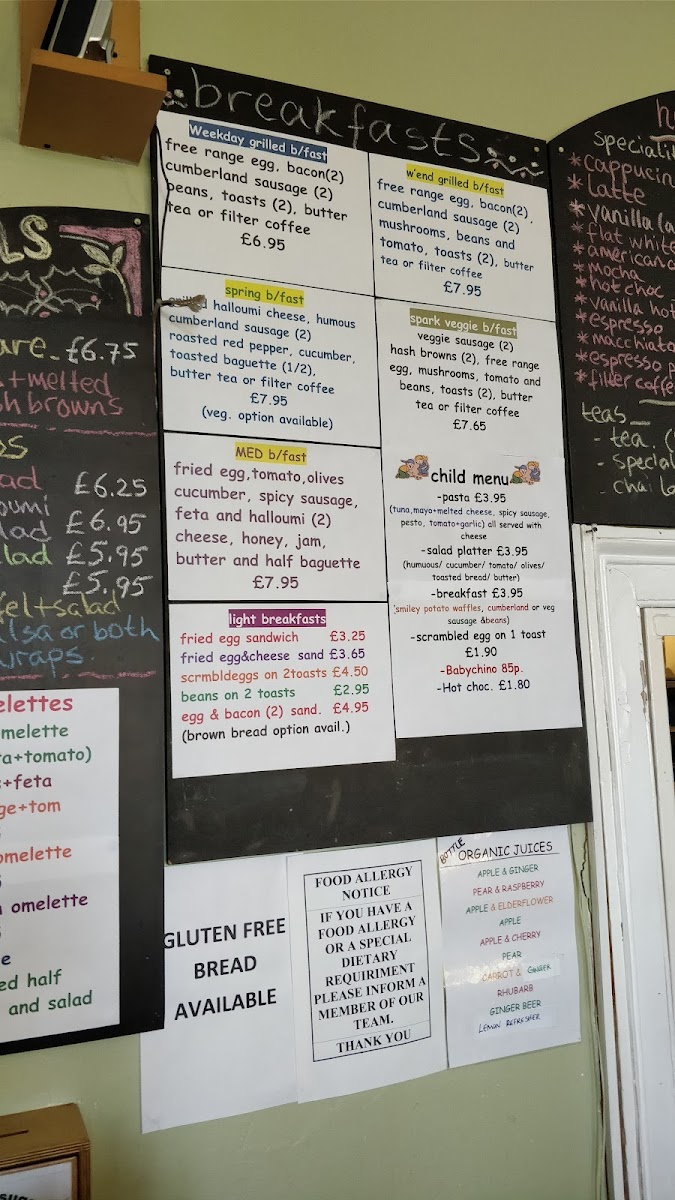 breakfasts
Weekday grilled b/fast
free range egg, bacon(2)
cumberland sausage (2)
beans, toasts (2), butter
tea or filter coffee
£6.95
w'end grilled b/fast
free range egg, bacon(2),
cumberland sausage (2)
mushrooms, beans and
tomato, toasts (2), butter
tea or filter coffee
£7.95
spring b/fast
halloumi cheese, humous
cumberland sausage (2)
roasted red pepper, cucumber,
toasted baguette (1/2),
butter tea or filter coffee
£7.95
(veg. option available)
spark veggie b/fast
veggie sausage (2)
hash browns (2), free range
egg, mushrooms, tomato and
beans, toasts (2), butter
tea or filter coffee
£7.65
MED b/fast
fried egg,tomato,olives
cucumber, spicy sausage,
feta and halloumi (2)
cheese, honey, jam,
butter and half baguette
£7.95
child menu
-pasta £3.95
(tuna,mayo+melted cheese, spicy sausage,
pesto, tomato+garlic) all served with
cheese
-salad platter £3.95
(humuous/ cucumber/ tomato/ olives/
toasted bread/ butter)
-breakfast £3.95
'smiley potato waffles, cumberland or veg
sausage &beans)
-scrambled egg on 1 toast
£1.90
-Babychino 85p.
-Hot choc. £1.80
light breakfasts
fried egg sandwich £3.25
fried egg&cheese sand £3.65
scrmbldeggs on 2toasts £4.50
beans on 2 toasts £2.95
egg & bacon (2) sand. £4.95
(brown bread option avail.)
GLUTEN FREE
BREAD
AVAILABLE
FOOD ALLERGY
NOTICE
IF YOU HAVE A
FOOD ALLERGY
OR A SPECIAL
DIETARY
REQUIRIMENT
PLEASE INFORM A
MEMBER OF OUR
TEAM.
THANK YOU
BOTTLE ORGANIC JUICES
APPLE & GINGER
PEAR & RASPBERRY
APPLE & ELDERFLOWER
APPLE
APPLE & CHERRY
PEAR
CARROT & GINGER
RHUBARB
GINGER BEER
LEMON REFRESHER
LS
are - £6.75
+melted
sh browns
ad £6.25
oumi £6.95
lad
lad £5.95
£5.95
fel+salad
alsa or both
wraps.
elettes
omelette
ta+tomato)
+feta
ge+tom
omelette
omelette
e
ed half
and salad
h
Specialit
*cappucin
*latte
*vanilla la
*flat white
*americano
*mocha
*hot choc
*vanilla hot
*espresso
*macchiato
*espresso p
*filter coffe
teas
- tea. (
- special
- chai la